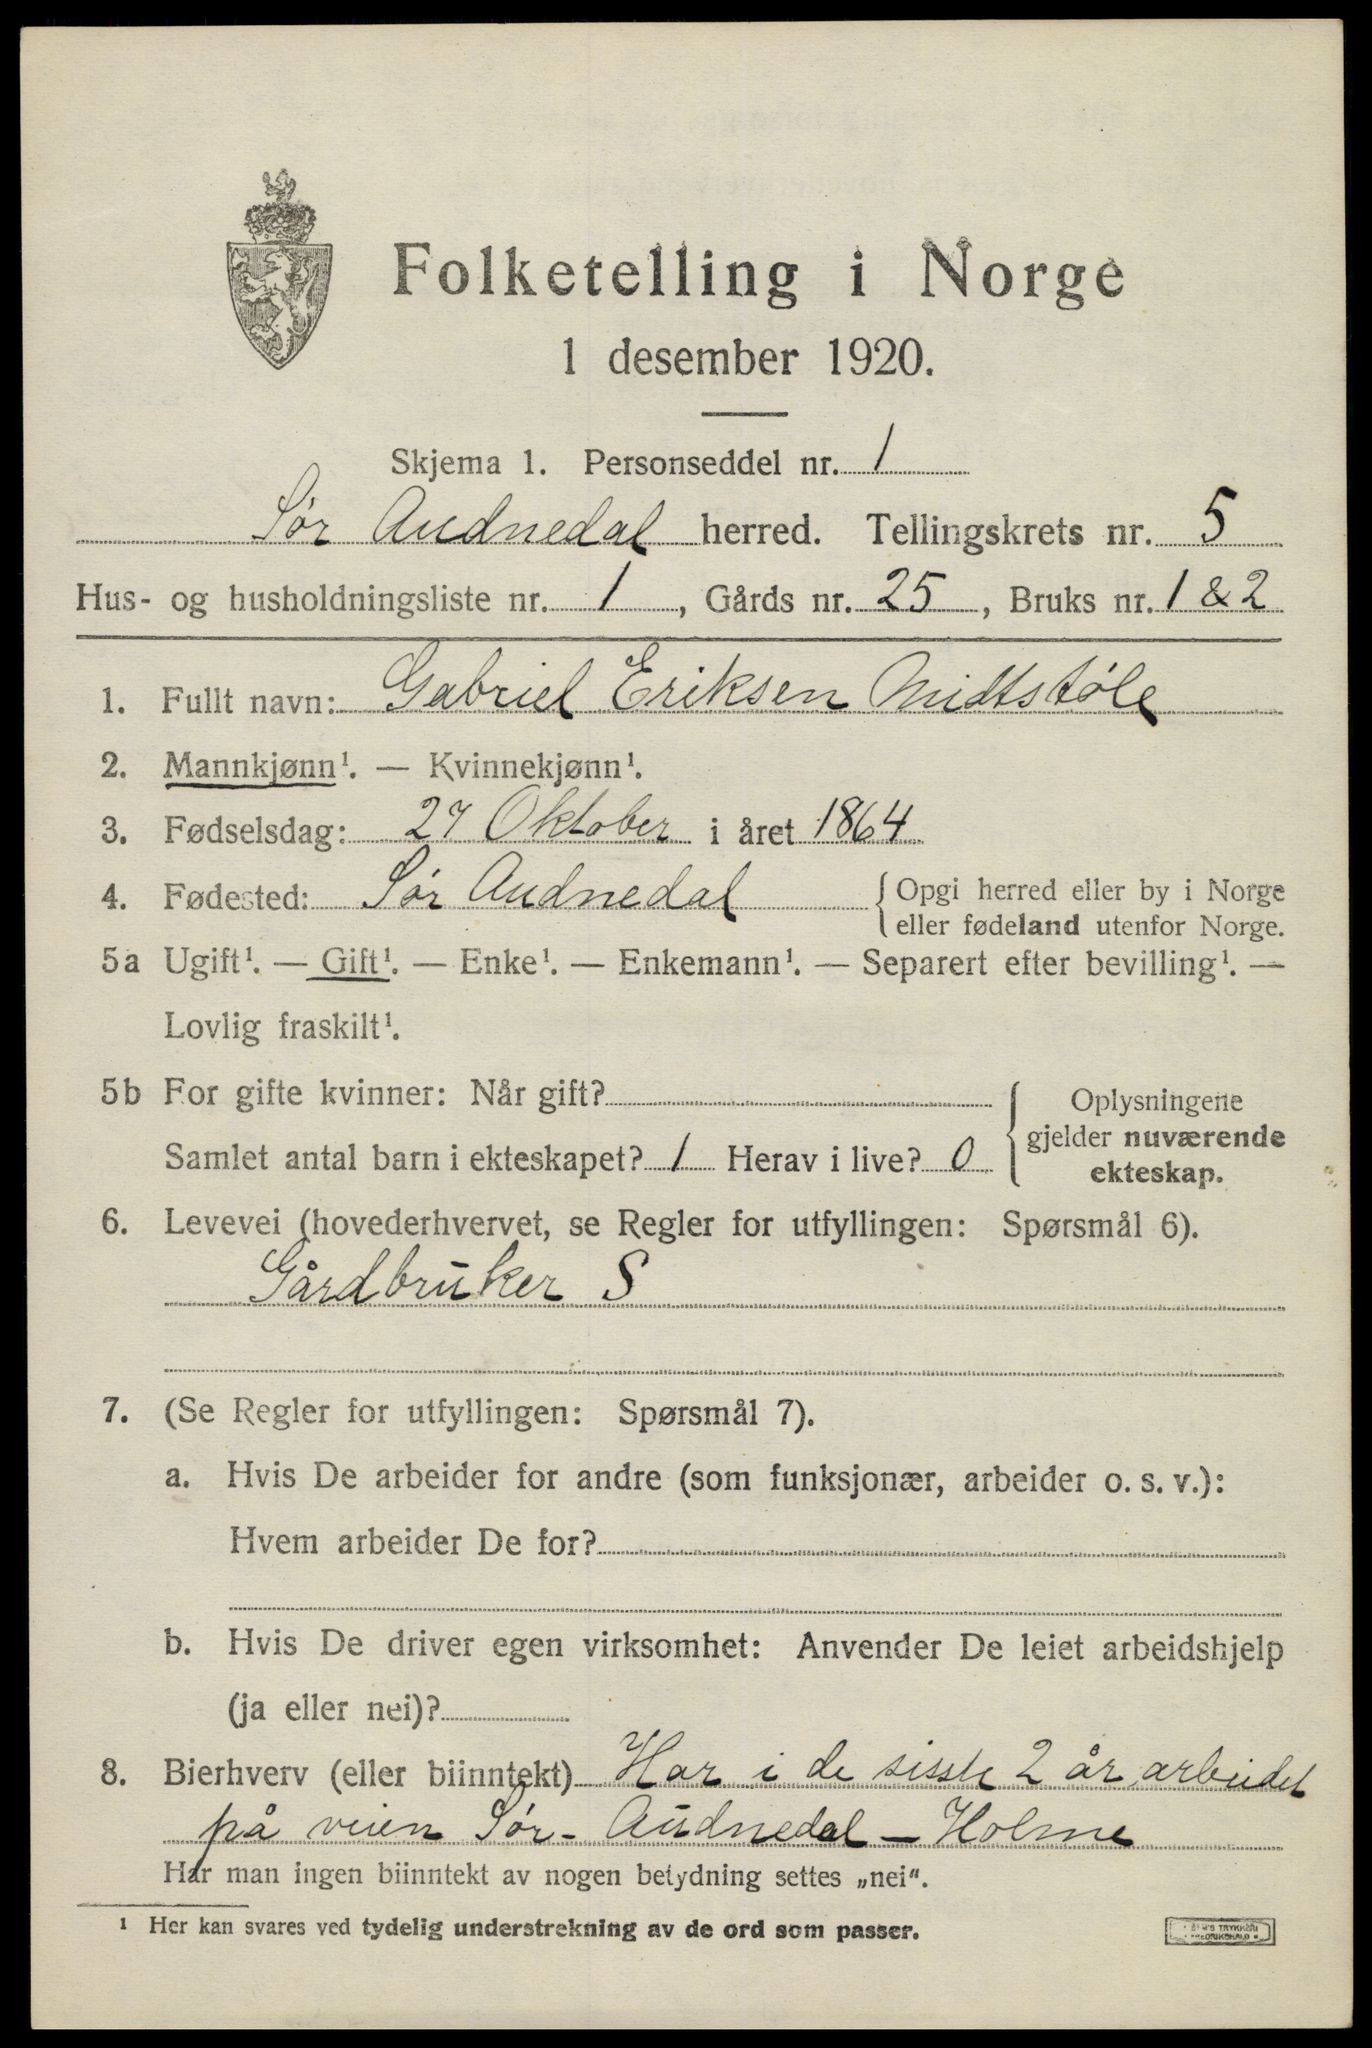 Folketelling i Norge
1 desember 1920.
Skjema 1. Personseddel nr. 1
Sør Audnedal herred. Tellingskrets nr. 5
Hus- og husholdningsliste nr. 1, Gårds nr. 25, Bruks nr. 1 & 2
1. Fullt navn: Gabriel Eriksen Midtstøle
2. Mannkjønn¹. — Kvinnekjønn¹.
3. Fødselsdag: 27 Oktober i året 1864
4. Fødested: Sør Audnedal { Opgi herred eller by i Norge
eller fødeland utenfor Norge.
5a Ugift¹. — Gift¹. — Enke¹. — Enkemann¹. — Separert efter bevilling¹. —
Lovlig fraskilt¹.
5b For gifte kvinner: Når gift?
Samlet antal barn i ekteskapet? 1 Herav i live? 0
Oplysningene
gjelder nuværende
ekteskap.
6. Levevei (hovederhvervet, se Regler for utfyllingen: Spørsmål 6).
Gårdbruker S
7. (Se Regler for utfyllingen: Spørsmål 7).
a. Hvis De arbeider for andre (som funksjonær, arbeider o. s. v.):
Hvem arbeider De for?
b. Hvis De driver egen virksomhet: Anvender De leiet arbeidshjelp
(ja eller nei)?
8. Bierhverv (eller biinntekt) Har i de sisste 2 år arbeidet
på veien Sør- Audnedal — Holme
Har man ingen biinntekt av nogen betydning settes „nei“.
¹ Her kan svares ved tydelig understrekning av de ord som passer.